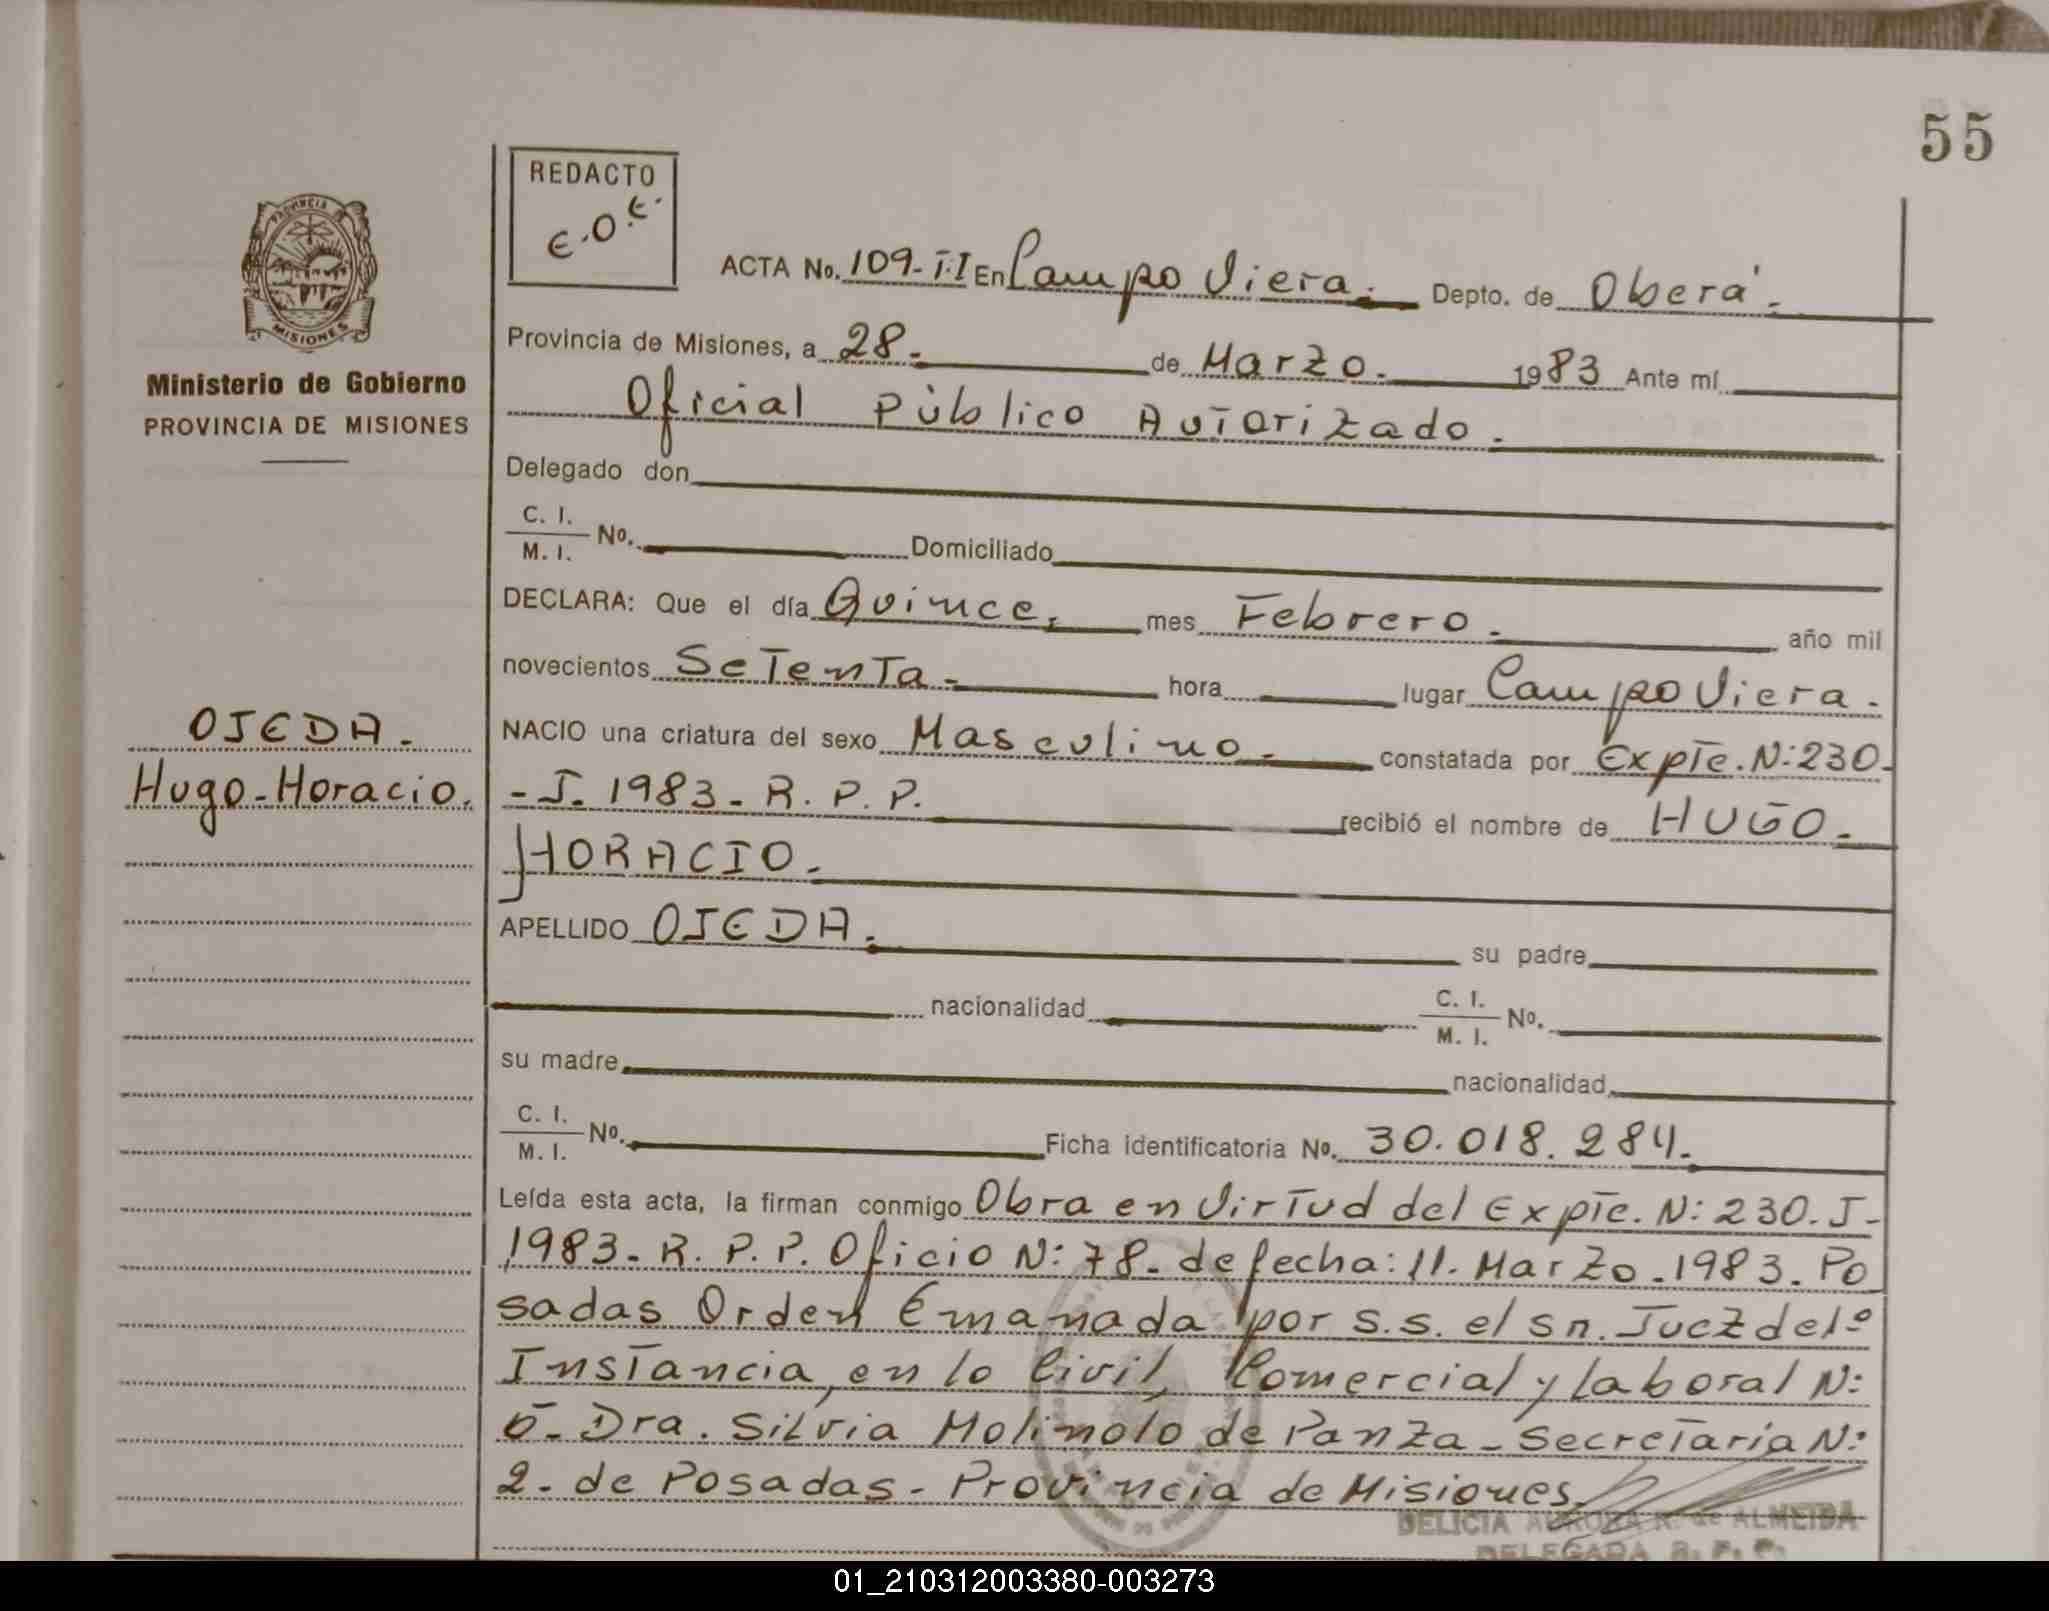 55
REDACTO
E.O.E.
ACTA No. 109-T.I En Campo Viera. Depto. de Oberá.
PROVINCIA
MISIONES
Provincia de Misiones, a 28. de Marzo. 1983 Ante mí
Ministerio de Gobierno
PROVINCIA DE MISIONES
Oficial Público Autorizado.
Delegado don
C. I.
M. I. No. Domiciliado
DECLARA: Que el día Quince, mes Febrero. año mil
novecientos Setenta. hora lugar Campo Viera.
OJEDA.
Hugo-Horacio.
NACIO una criatura del sexo Masculino. constatada por Expte. N: 230.
-J. 1983. R. P. P. recibió el nombre de HUGO.
HORACIO.
APELLIDO OJEDA. su padre
nacionalidad C. I.
M. I. No.
su madre nacionalidad
C. I.
M. I. No. Ficha identificatoria No. 30.018.284.
Leída esta acta, la firman conmigo Obra en Virtud del Expte. N: 230. J-
1983. R. P. P. Oficio N: 78. de fecha: 11. Marzo. 1983. Po
sadas Orden Emanada por s.s. el sn. Juez de 1º
Instancia, en lo Civil, Comercial y laboral N:
5. Dra. Silvia Molinolo de Panza - Secretaría N:
2. de Posadas - Provincia de Misiones.
DELICIA AURORA R. de ALMEIDA
DELEGADA R. P. P.
01_210312003380-003273